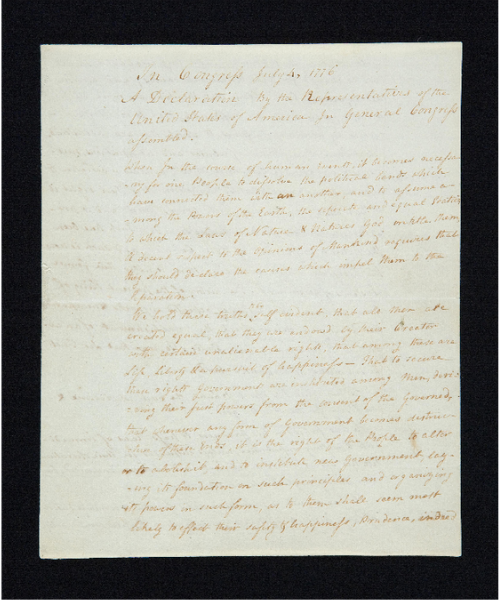 In Congress July 4, 1776
A Declaration By the Representatives of the
United States of America In General Congress
assembled.
When In the course of human events, it becomes necess
-ary for one People to dissolve the political bands which
have connected them with another, and to assume a-
-mong the Powers of the Earth, the separate and equal Station
to which the Laws of Nature & Natures God entitle them,
A decent respect to the opinions of Mankind requires that
they should declare the causes which impel them to the
Separation.
We hold these truths Self evident, that all Men are
created equal, that they are endowed by their Creator
with certain unalienable rights, that among these are
Life Liberty & pursuit of happiness — That to secure
these rights Governments are instituted among Men, deri-
-ving their just powers from the consent of the Governed,
that whenever any form of Government becomes destruc-
-tive of these Ends, it is the right of the People to alter
or to abolish it, and to institute new Government, lay-
-ing its foundation on such principles, and organizing
its powers in such form, as to them shall seem most
likely to effect their safety & happiness; Prudence, indeed